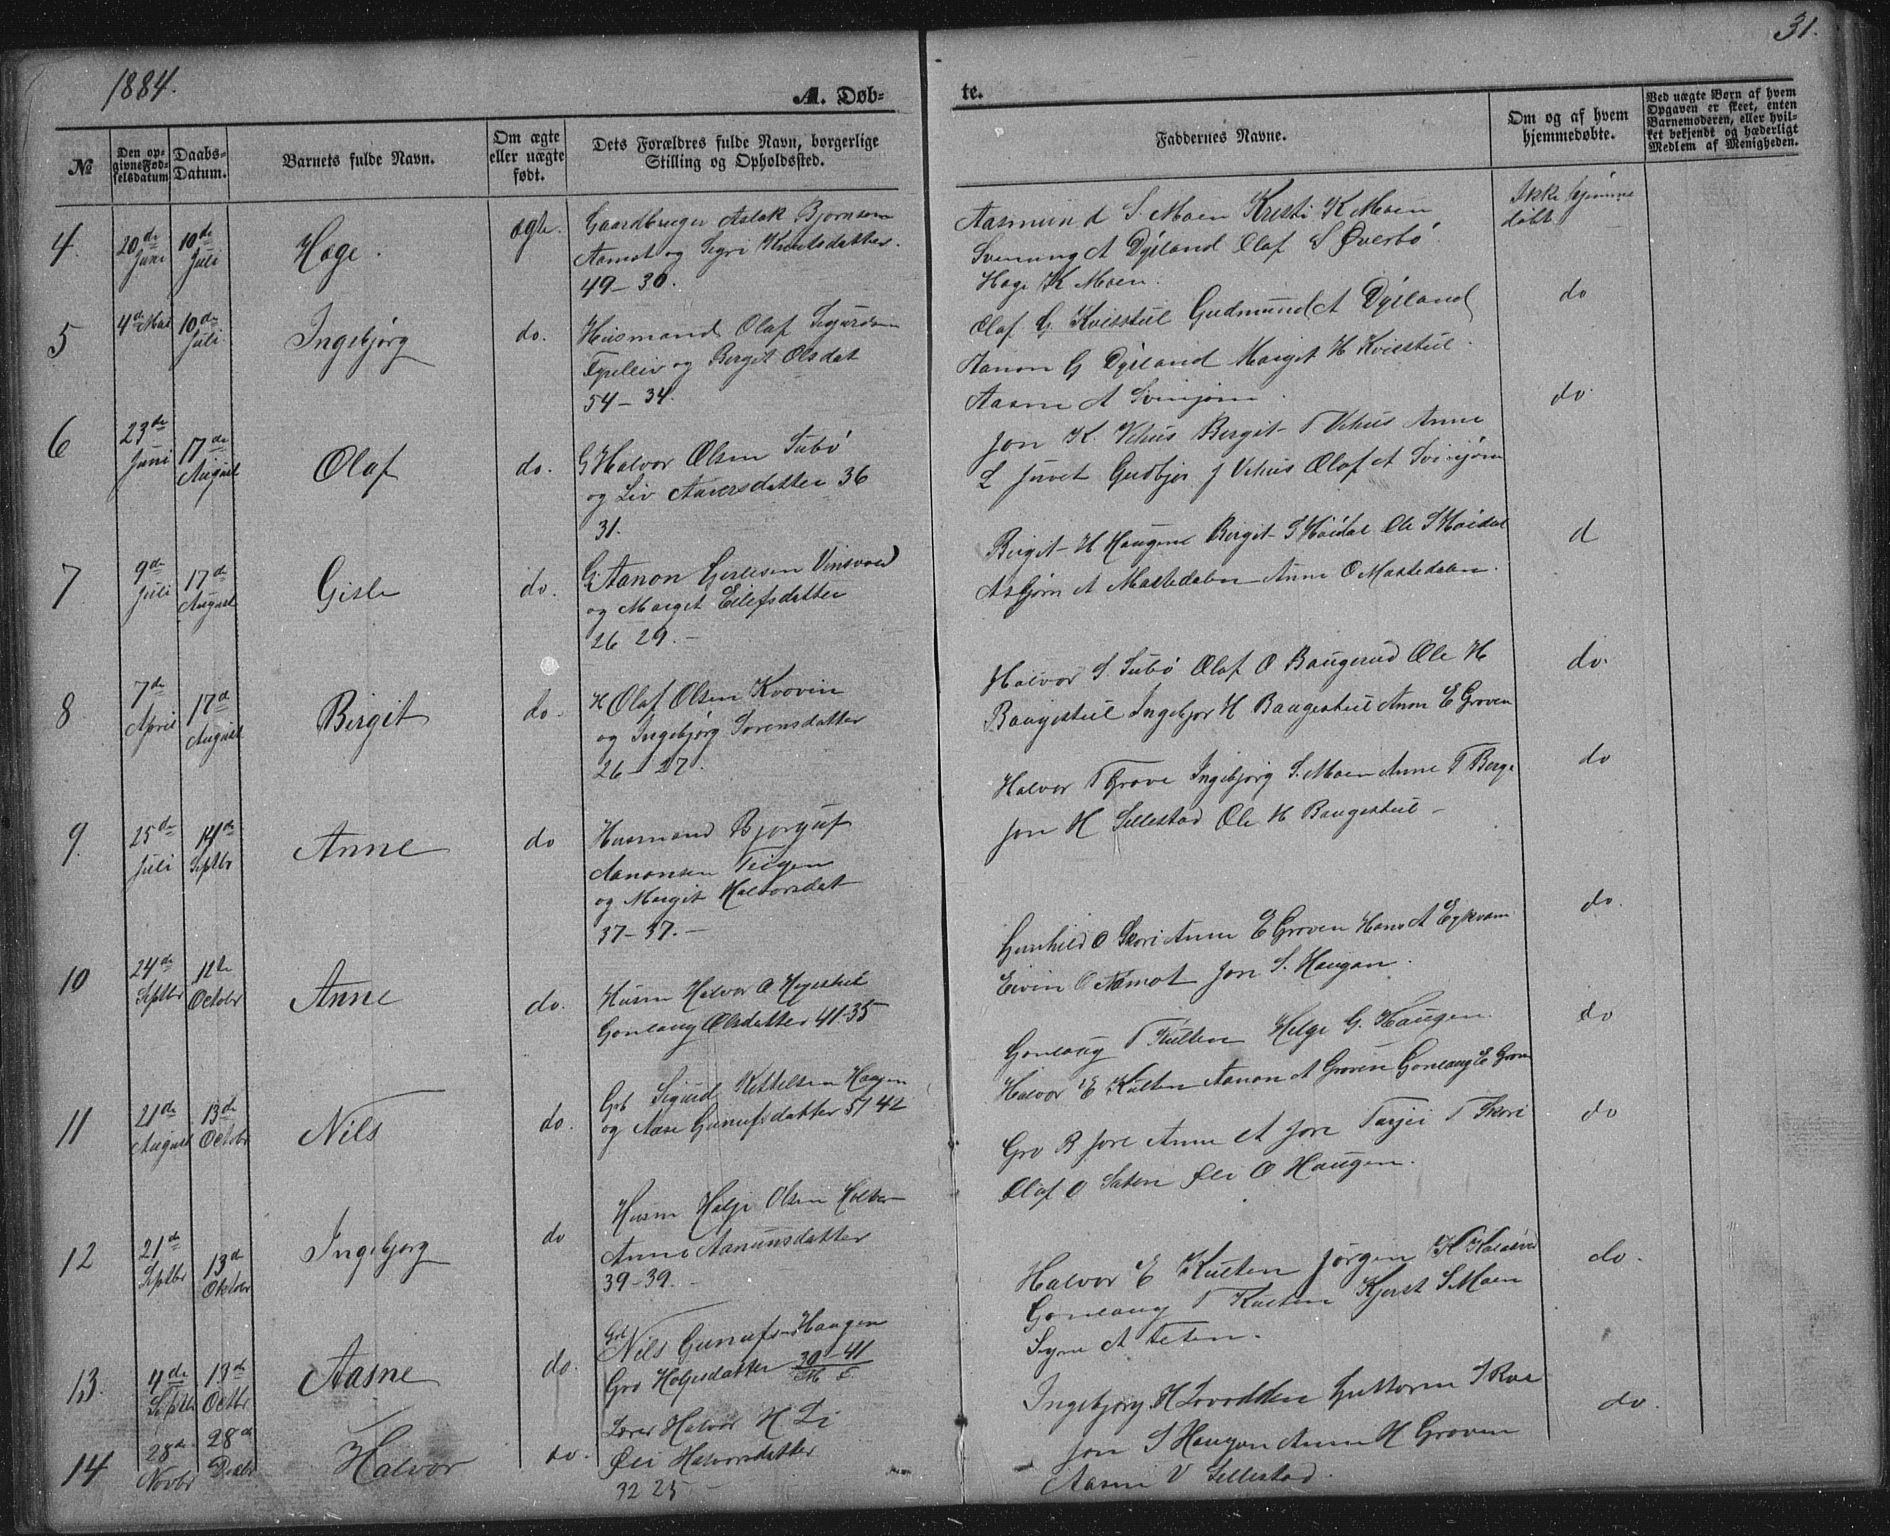 31.
1884.
A. Døb-
te.
№
Den op-
givne Fød-
selsdatum
Daabs-
Datum.
Barnets fulde Navn.
Om ægte
eller uægte
født.
Dets Forældres fulde Navn, borgerlige
Stilling og Opholdssted.
Faddernes Navne.
Om og af hvem
hjemmedøbte.
Ved uægte Børn af hvem
Opgaven er skeet, enten
Barnemoderen, eller hvil-
ket bekjendt og hæderligt
Medlem af Menigheden.
4.
20de
Juni
10de
Juli
Hæge.
ægte.
Gaardbruger Aslak Bjørnsen
Aamot og Sigri Knutsdatter.
49-30.
Aasmund S. Moen Kristi K Moen
Svenung A Dyrland Olaf S Øverbø
Hæge K Moen.
Ikke hjemme
døbt
5
4de Mai
10de
Juli
Ingebjørg
do.
Husmand Olaf Sigurdsen
og Berget Olsdat
54-34.
Olaf G Kvisstul Gudmund A Dyrland
Aanon G Dyrland Marget H Kvisstul.
Aasne A Svinjom.
do
6
23de
Juni
17de
August
Olaf
do.
G Halvor Olsen Tubø
og Liv Aaversdatter 36
31.
Jon K. Vehus Bergit T Vehus Anne
L Juvet Gudbjør J Vehus Olaf A Svinjom
do
7
9de
Juli
17de
August
Gisle
do.
G Aanon Gislesen Vinsvold
og Marget Eilefsdatter
26 29.-
Birgit H Haugene Berget S Ole S
Asbjørn A Mastedalen Anne O Mastedalen.
d
8
7de
April
17de
August
Bergit
do.
H Olaf Olsen Kvovin
og Ingebjørg Sørensdatter
26-27.
Halvor S Tubø Olaf O Baugerud Ole H
Baugestul Ingebjør H Baugestul Anne E Groven
do.
9.
25de
Juli
14de
Septbr
Anne
do
Husmand Bjørguf
Aanonsen Teigen
og Margit Halvorsdat
37-37.-
Halvor T Grove Ingebjørg S. Moen Anne T Berge
Jon H Sellestad Ole H Baugestul -
do
10
24de
Septbr
12te
Octobr
Anne
do.
Husm Halvor O
Gonlaug Olsdatter 41-35
Gunhild O Skori Anne E Groven Hans A
Eivin O Aamot Jon S. Haugan.
do.
11
21de
August
13de
Octobr
Nils
do.
Gbr Sigurd Kittelsen Haugen
og Aase Gunufsdatter 51 42
Gonlaug T Kulten Helge G. Haugen.
Halvor E Kulten Aanon A Groven Gonlaug E Groven
do
12
21de
Septbr
13de
Oktobr
Ingebjørg
do
Husm Helje Olsen
Anne Aanunsdatter
39-39.
Gro B Jore Anne A Jore Tarjei T Skori
Olaf O Saten Øli O Haugen.
do
13.
4de
Septbr
13de
Octbr
Aasne
do.
Gbr
Nils Gunufsen Haugen
Gro Heljesdatter 30-41
Halvor E Kulten Jørgen H
Gonlaug T Kulten Kjerst S Moen
Signe A Teten.
do.
14
28de
Novbr
28de
Decbr
Halvor
do.
Lærer Halvor H Li
Øli Halvorsdatter
32 25 -
Ingebjørg H Lvodden Guttorm S Roe
Jon S Haugan Anne H Groven
Aasne V Sellestad.
do.